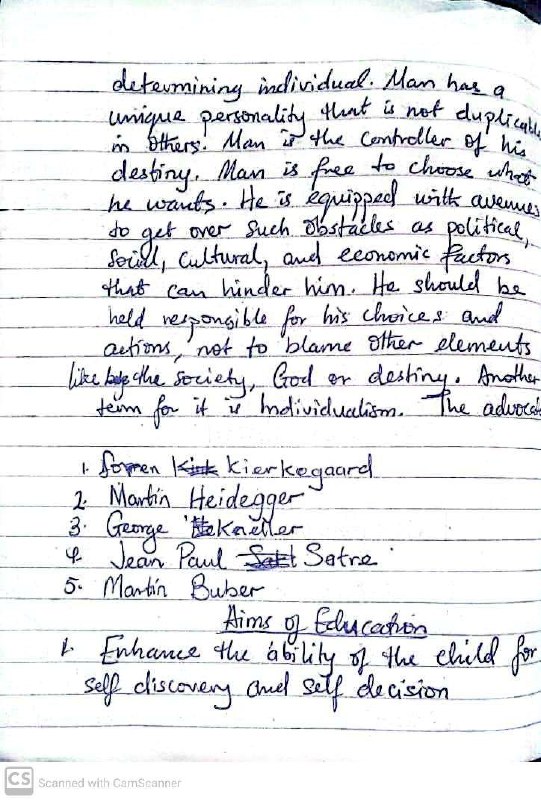 determining individual. Man has a
unique personality that is not duplicable
in others. Man is the controller of his
destiny. Man is free to choose what
he wants. He is equipped with avenues
to get over such obstacles as political,
social, cultural, and economic factors
that can hinder him. He should be
held responsible for his choices and
actions, not to blame other elements
like the society, God or destiny. Another
term for it is Individualism. The advocat
1. Soren Kierkegaard
2. Martin Heidegger
3. George Kneller
4. Jean Paul Satre
5. Martin Buber
Aims of Education
1. Enhance the ability of the child for
self discovery and self decision
CS Scanned with CamScanner